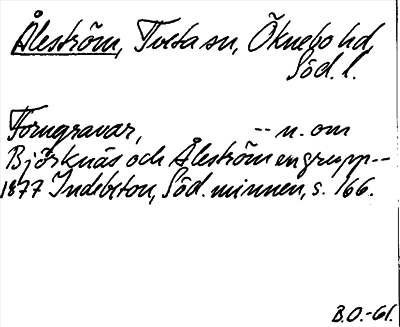 Åleström, Tveta sn, Öknebo hd,
Söd. l.
Forngravar, -- n. om
Björknäs och Åleström en grupp--
1877 Indebetou, Söd. minnen, s. 166.
B.O.-61.